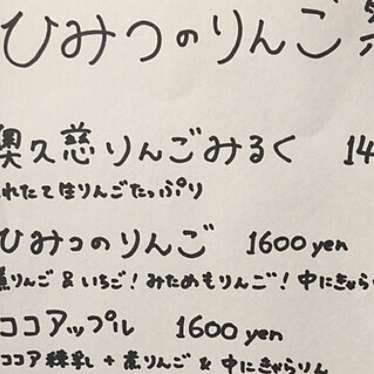 ひみつのりんご
奥久慈りんごみるく 14
れたて生りんごたっぷり
ひみつのりんご 1600 yen
煮りんご & いちご! みためもりんご! 中にきゃら
ココアップル 1600 yen
ココア練乳 + 煮りんご & 中にきゃらりん